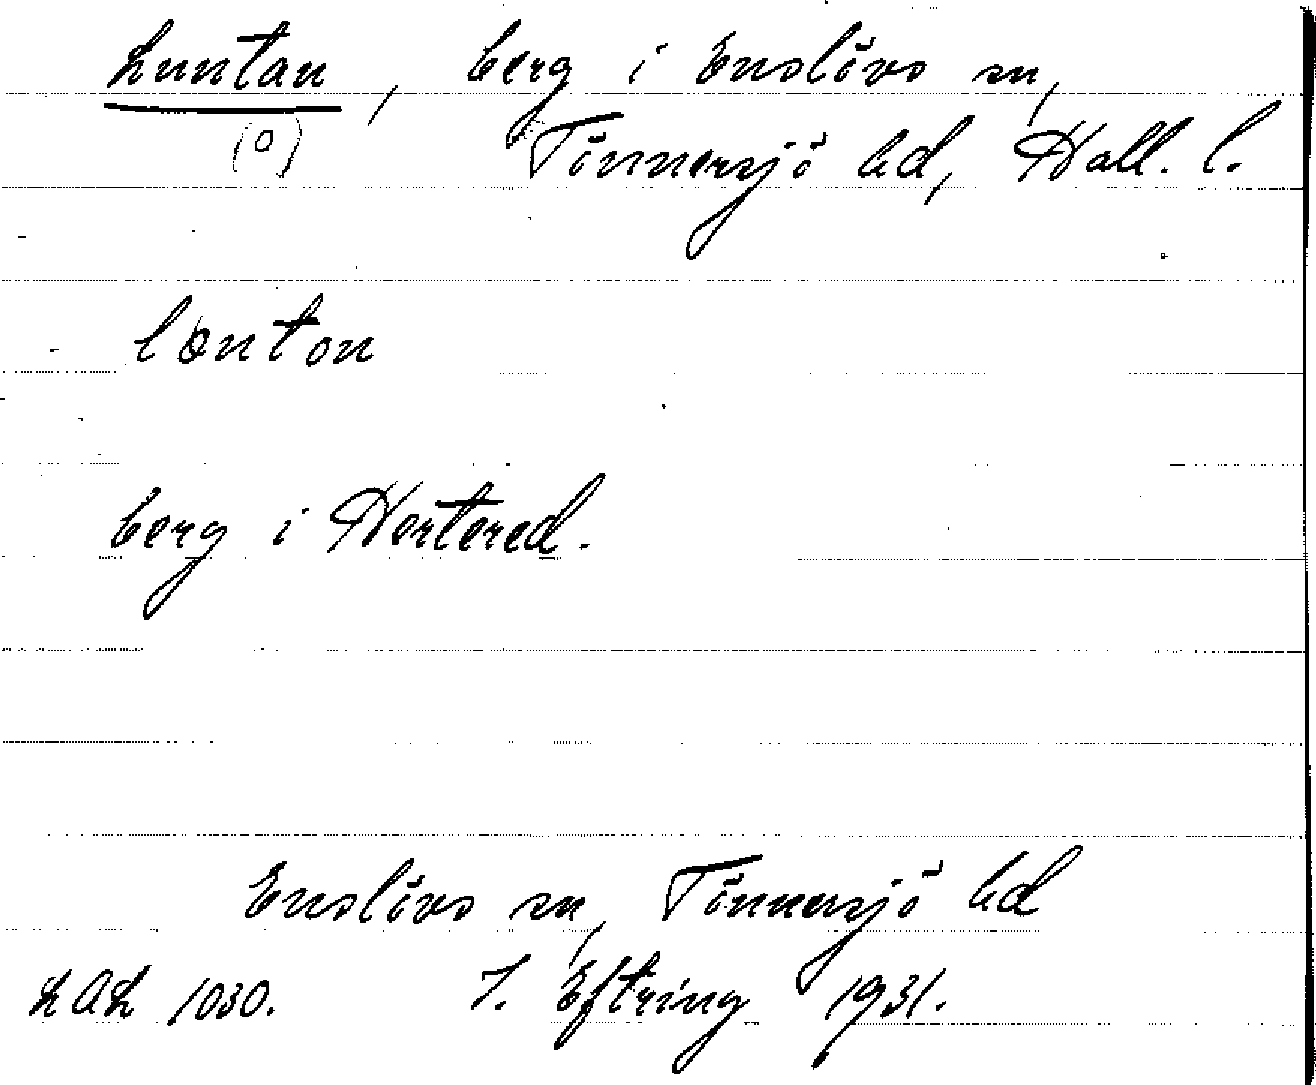 Luntan, berg i Enslövs sn,
(o) Tönnersjö hd, Hall. l.
lonton
berg i Hertered.
Enslövs sn, Tönnersjö hd
LAL 1030. J. Eftring 1931.